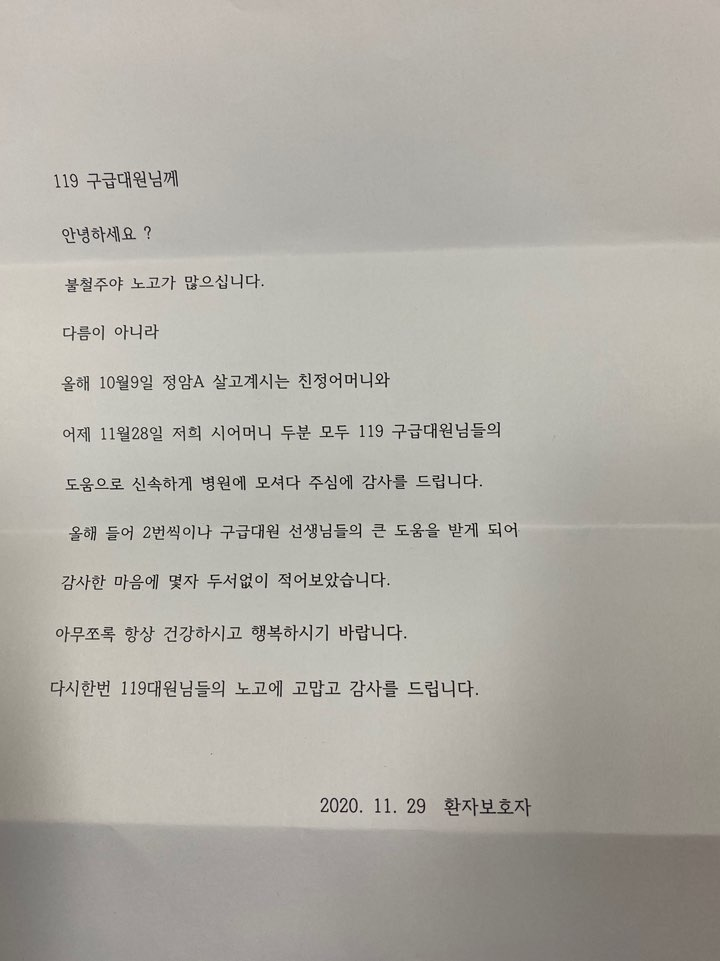 119 구급대원님께
안녕하세요 ?
불철주야 노고가 많으십니다.
다름이 아니라
올해 10월9일 정암A 살고계시는 친정어머니와
어제 11월28일 저희 시어머니 두분 모두 119 구급대원님들의
도움으로 신속하게 병원에 모셔다 주심에 감사를 드립니다.
올해 들어 2번씩이나 구급대원 선생님들의 큰 도움을 받게 되어
감사한 마음에 몇자 두서없이 적어보았습니다.
아무쪼록 항상 건강하시고 행복하시기 바랍니다.
다시한번 119대원님들의 노고에 고맙고 감사를 드립니다.
2020. 11. 29 환자보호자